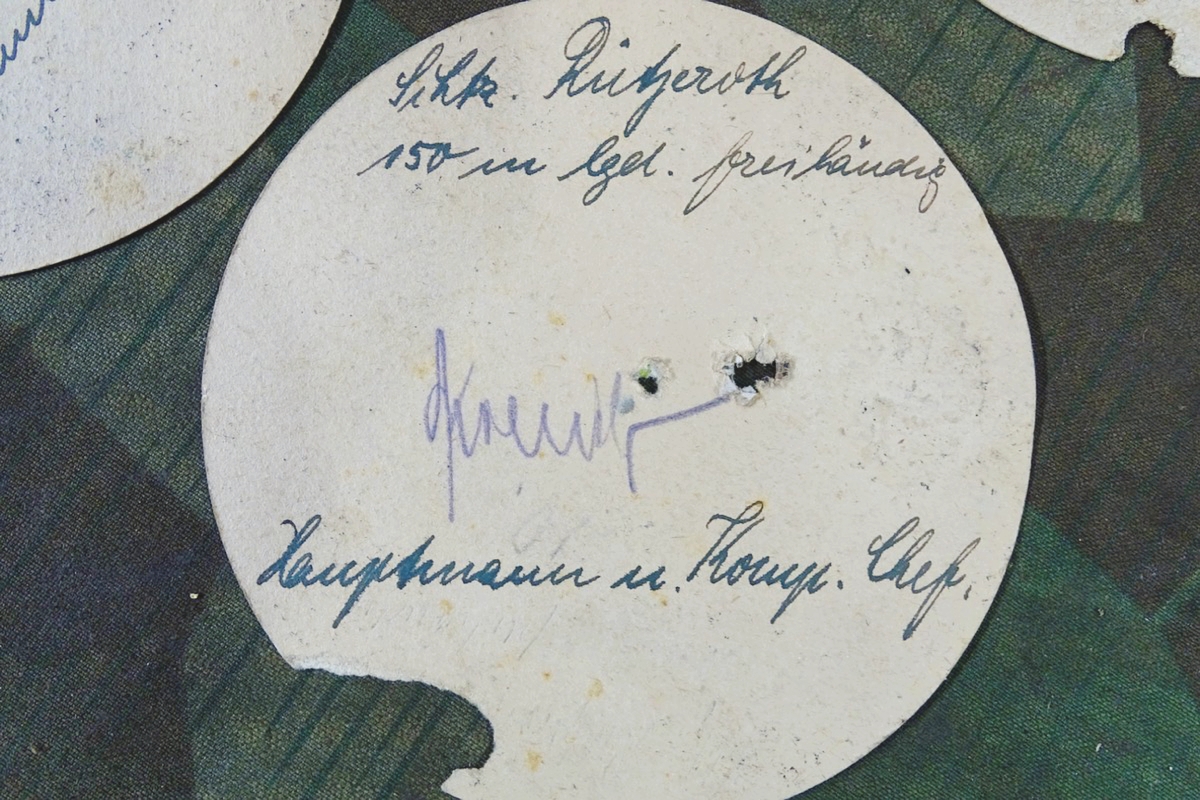 Schtz. Rütjeroth
150 m lgd. freihändig
Hauptmann u. Komp. Chef.